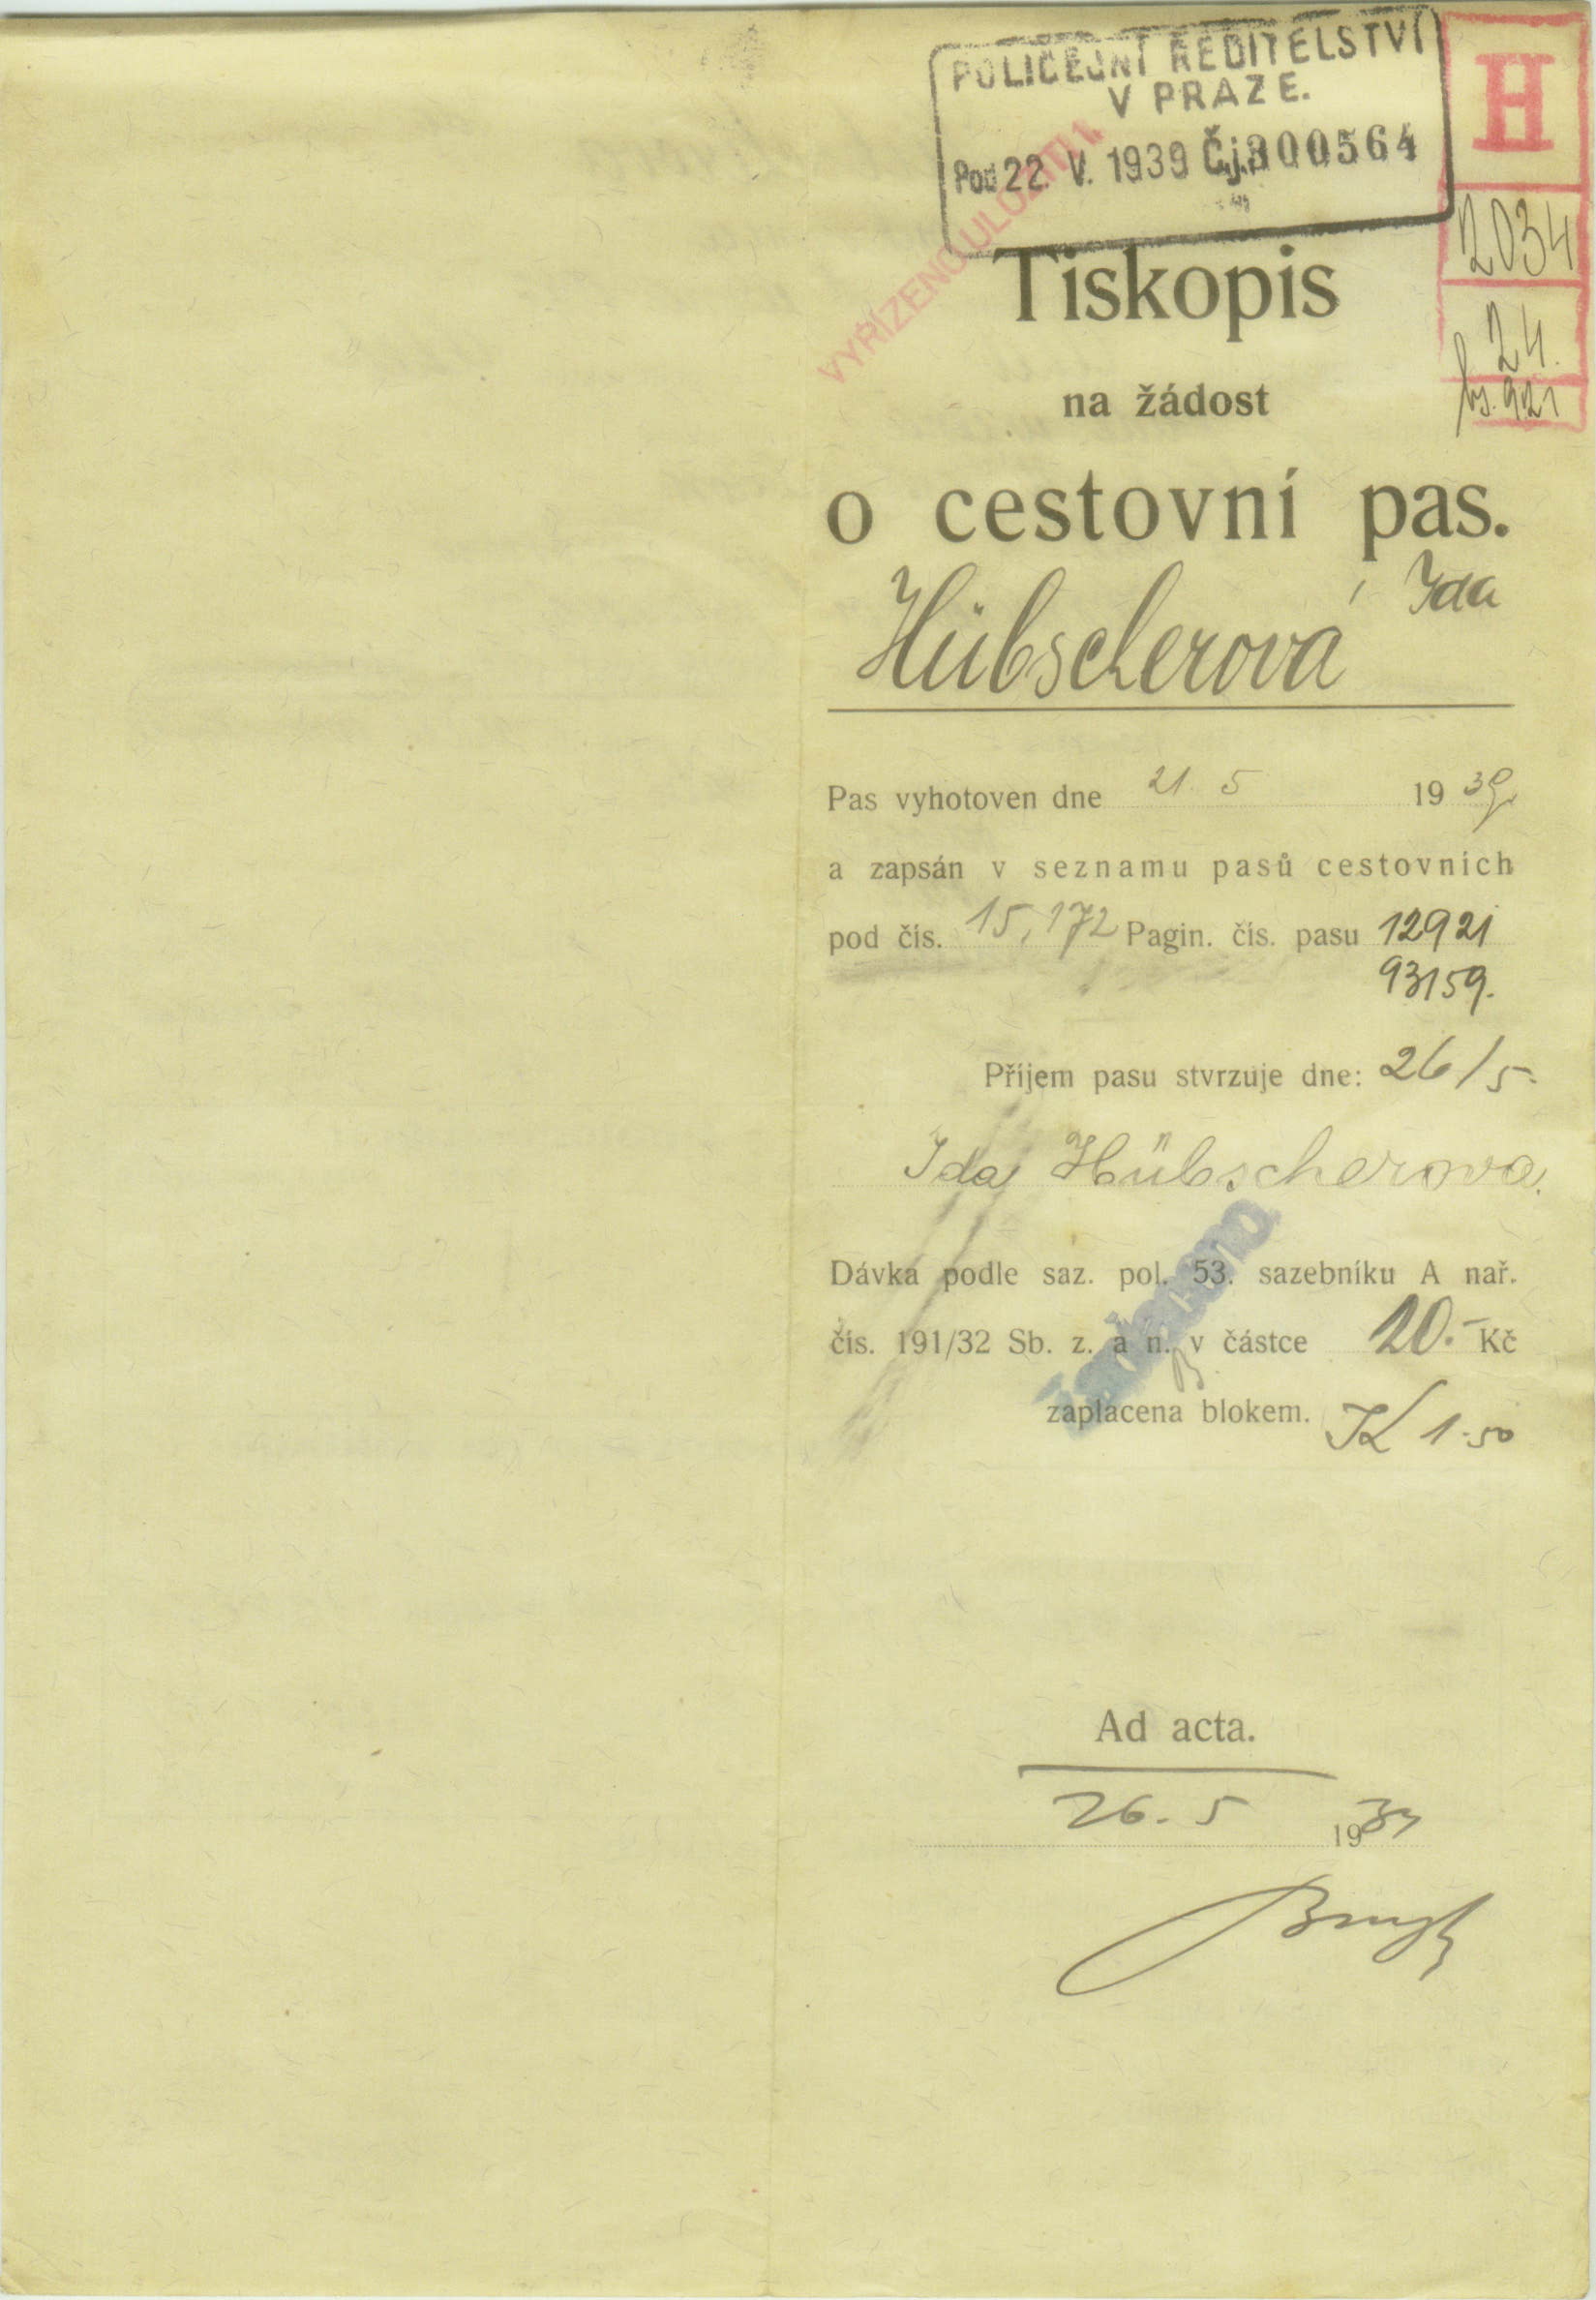 POLICEJNÍ ŘEDITELSTVÍ
V PRAZE.
Pod 22. V. 1939 Čj. 300564
H
2034
24.
921
VYŘÍZENO ULOŽITI
Tiskopis
na žádost
o cestovní pas.
Hübscherová, Ida
Pas vyhotoven dne 21. 5 1939
a zapsán v seznamu pasů cestovních
pod čís. 15,172 Pagin. čís. pasu 12921
93159.
Příjem pasu stvrzuje dne: 26/5.
Ida Hübscherova.
Dávka podle saz. pol. 53. sazebníku A nař.
čís. 191/32 Sb. z. a n. v částce 20.- Kč
zaplacena blokem. K 1.50
Ad acta.
26. 5 1939